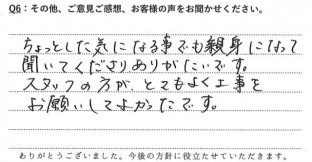 Q6：その他、ご意見ご感想、お客様の声をお聞かせください。
ちょっとした気になる事でも親身になって
聞いてくださりありがたいです。
スタッフの方が、とてもよく工事を
お願いしてよかったです。
ありがとうございました。今後の方針に役立たせていただきます。